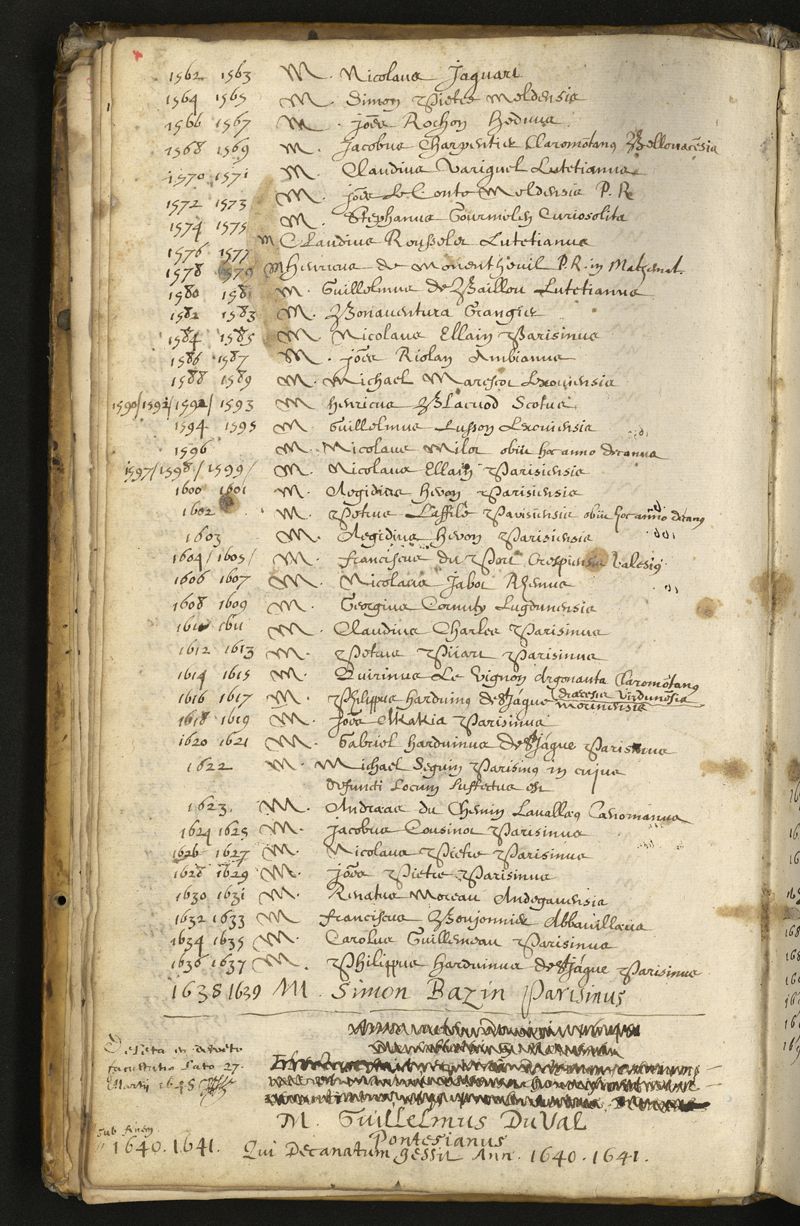 1562 1563 M. Nicolaus Jaquart
1564 1565 M. Simon Pietre Meldensis
1566 1567 M. Joēs Rochon Heduus
1568 1569 M. Jacobus Charpentier Claromōtanꝰ Bellouacēsis
1570 1571 M. Claudius Variquel Lutetianus
1572 1573 M. Joēs Le Conte Meldensis P. R
1574 1575 M. Stephanus Gourmelen Curiosolita
1576 1577 M Claudius Rousselet Lutetianus
1578 1579 M Henricus de Monentheuil P. R. in Mathemat.
1580 1581 M. Guillelmus de Baillou Lutetianus
1582 1583 M. Bonaventura Grangier
1584 1585 M Nicolaus Ellain Parisinus
1586 1587 M. Joēs Riolan Ambianus
1588 1589 M. Michael Marescot Lexouiensis
1590/1591/1592/ 1593 M henricus Blacuod Scotus
1594 1595 M Guillelmus Lusson Lexouiensis
1596 M. Nicolaus Milot obiit hoc anno decanus
1597/1598/1599/ M. Nicolaus Ellain Parisiensis
1600 1601 M. Aegidius Heron Parisiensis
1602 M. Petrus Laffilé Parisiensis obiit hoc anño decanꝰ
1603 M. Aegidius Heron Parisiensis
1604/1605/ M. Franciscus du Port Crespiensis Valesiꝰ
1606 1607 M. Nicolaus Jabot Rhemus
1608 1609 M. Georgius Cornuty Lugdunensis
1610 1611 M. Claudius Charles Parisinus
1612 1613 M. Petrus Pijart Parisinus
1614 1615 M. Quirinus Le Vignon Argonauta Claromōtanꝰ
diœcesis Virdunēsis
1616 1617 M. Philippus Harduinꝰ de St Jaque Morinensis
1618 1619 M. Joēs Akakia Parisinus
1620 1621 M. Gabriel Harduinus de St Jaque Parisinus
1622 M. Michael Seguin Parisinꝰ in cujus
defuncti locum suffectus est
1623. M. Andreas du Chemin Lavallæꝰ Cænomanus
1624 1625 M. Jacobus Cousinot Parisinus
1626 1627 M. Nicolaus Pietre Parisinus
1628 1629 M. Joēs Pietre Parisinus
1630 1631 M. Renatus Moreau Andegauensis
1632 1633 M Franciscus Boujonnier Abbauillæus
1634 1635 M. Carolus Guillemeau Parisinus
1636 1637 M. Philippus Harduinus de St Jaque Parisinus
1638 1639 M. Simon Bazin Parisinus
Deleta ex decreto
facultatis lato 27.
Martii 1648
M. Guillelmus DuVal
Pontesianus
sub finem
1640. 1641. Qui Decanatum gessit Ann. 1640. 1641.